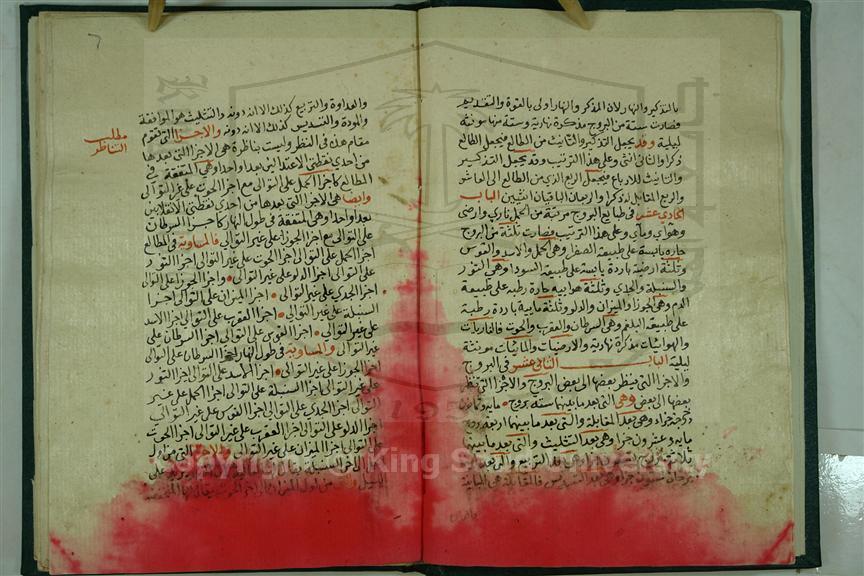 بالتذكير والنهار لان المذكر والنهار اولى بالقوة والتقديم
فصارت ستة من البروج مذكرة نهارية وستة منها مونثة
ليلية وقد يجعل التذكير والتانيث من الطالع فيجعل الطالع
ذكرا والثاني انثى وعلى هذا الترتيب وقد يجعل التذكير
والتانيث للارباع فيجعل الربع الذي من الطالع الى العاشر
والربع المقابل له ذكرا والربعان الباقيان انثيين الباب
الحادي عشر في طبايع البروج مرتبة من الحمل ناري وارضى
وهوائي ومائي وعلى هذا الترتيب فصارت ثلثة من البروج
حارة يابسة على طبيعة الصفرا وهى الحمل والاسد والقوس
وثلثة ارضية باردة يابسة على طبيعة السودا وهى الثور
والسنبلة والجدي وثلثة هوايية حارة رطبة على طبيعة
الدم وهى الجوزا والميزان والدلو وثلثة مايية باردة رطبة
على طبيعة البلغم وهى السرطان والعقرب والحوت فالناريات
والهوائيات مذكرة نهارية والارضيات والمائيات مونثة
ليلية الباب الثاني عشر في البروج
والاجزا التى ينظر بعضها الى بعض البروج والاجزا التى ينظر
بعضها الى بعض وهى التى بعد ما بينها ستة بروج مايه وثمانون
درجة جزاء وهى بعد المقابلة والتى بعد ما بينها اربعة
مايه وعشرون جزا وهى بعد التثليث والتى بعد ما بينها
ثلاثة بروج وهى بعد التربيع والتى بعد
برجان ستون جزا وهى بعد التسديس فالمقابلة هى المباينة
والعداوة والتربيع كذلك الا انه دونه والتثليث هو الموافقة
والمودة والتسديس كذلك الا انه دونه والاجزا التى تقوم
مقام هذه في النظر وليست بناظرة هى الاجزا التى بعدها
من احدى نقطتى الاعتدالين بعد واحد وهى المتفقة في
المطالع كاجزا الحمل على التوالى مع اجزا الحوت على غير التوالى
وايضا هى الاجزا التى بعدها من احدى نقطتى الانقلابين
بعد واحد وهى المتفقة في طول النهار كاجزا السرطان
على التوالى مع اجزا الجوزا على غير التوالى فالمساوية في المطالع
اجزا الحمل على التوالى اجزا الحوت على غير التوالى اجزا الثور
على التوالى اجزا الدلو على غير التوالى واجزا الجوزا على التوالى
اجزا الجدي على غير التوالى اجزا السرطان على التوالى اجزا
السنبلة على غير التوالى اجزا العقرب على التوالى اجزا الاسد
على غير التوالى اجزا القوس على التوالى اجزا السرطان على
غير التوالى والمساوية في طول النهار اجزا السرطان على التوالى
اجزا الجوزا على غير التوالى اجزا الاسد على التوالى اجزا الثور
على غير التوالى اجزا السنبلة على التوالى اجزا الحمل على غير
التوالى اجزا الجدي على التوالى اجزا القوس على غير التوالى
اجزا الدلو على التوالى اجزا العقرب على غير التوالى اجزا الحوت
على التوالى اجزا الميزان على غير التوالى والاجزا التى من اول
مطلب
التناظر
٦
Copyright © King Saud University